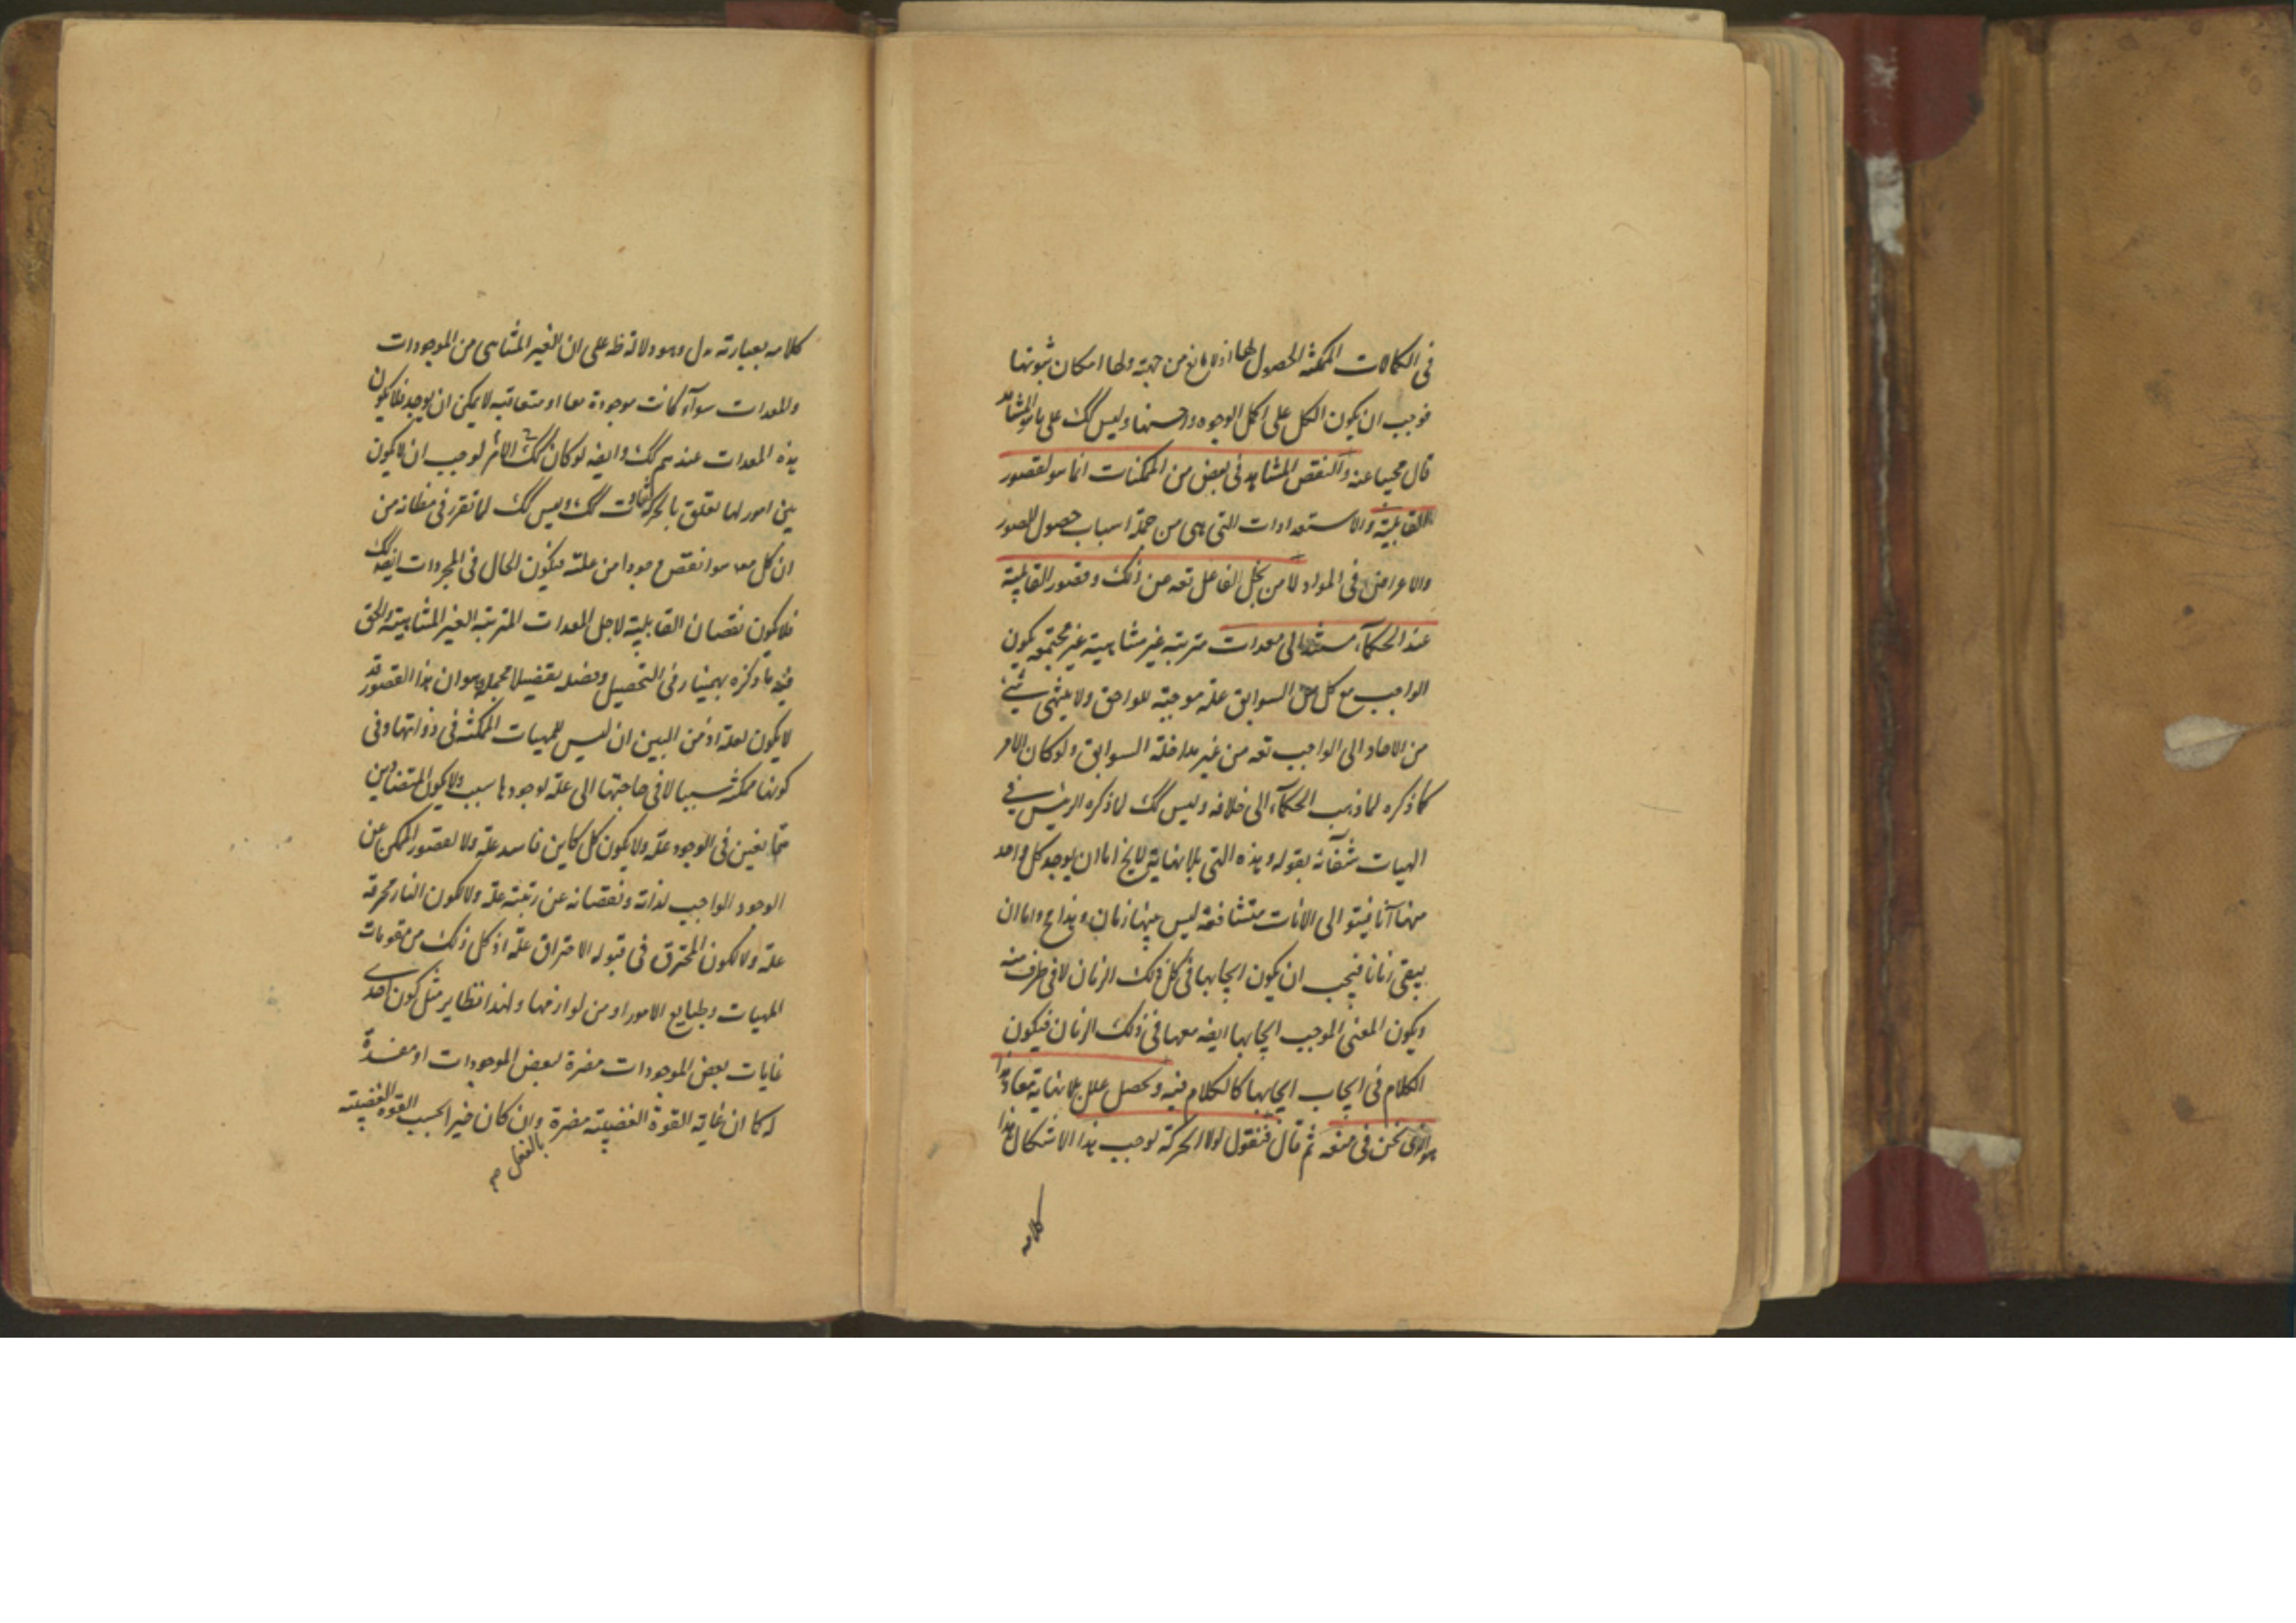 فى الكمالات الممكنة الحصول لها اذ لا مانع من جهته ولها امكان ثبوتها
فوجب ان يكون الكل على اكمل الوجوه واحسنها وليس كك على ما هو المشاهد
قال مجيبا عنه والنقص المشاهد فى بعض من الممكنات انما هو لقصور
القابلية والاستعدادات التى هى من جملة اسباب حصول الصور
والاعراض فى المواد لا من بخل الفاعل تعه عن ذلك وقصور القابلية
عند الحكمآء مستند الى معدات مترتبة غير متناهية غير مجتمعه يكون
الواجب مع كل من السوابق علة موجبة للواحق ولا ينتهى شئ
من الاحاد الى الواجب تعه من غير مداخلة السوابق ولو كان الامر
كما ذكره لما ذهب الحكمآء الى خلافه وليس كك لما ذكره الرئيس فى
الهيات شفآئه بقوله وهذه التى بلا نهاية لا يخ اما ان يوجد كل واحد
منها آنا فيتوالى الانات متشافعة ليس بينها زمان وهذا مح واما ان
يبقى زمانا فيجب ان يكون ايجابها فى كل ذلك الزمان لا فى طرف منه
ويكون المعنى الموجب ايجابها ايضه معها فى ذلك الزمان فيكون
الكلام فى ايجاب ايجابها كالكلام فيه ويحصل علل بلا نهاية معا وهذا
هو الذى نحن فى منعه ثم قال فنقول لولا الحركة لوجب هذا الاشكال هذا
كلامه
كلامه بعبارته دل وهو دلالة ظه على ان الغير المتناهى من الموجودات
والمعدات سوآء كانت موجودة معا او متعاقبه لا يمكن ان يوجد فلا يكون
هذه المعدات عندهم كك وايضه لو كان كك الامر لوجب ان لا يكون
بين امور لها تعلق بالحركة تفاوت كك وليس كك لما تقرر فى مظانه من
ان كل معلول انقص وجودا من علته فيكون الحال فى المجردات ايضه كك
فلا يكون نقصان القابلية لاجل المعدات المترتبة الغير المتناهية والحق
فيه ما ذكره بهمنيار فى التحصيل وفصله تفصيلا مجمله هو ان هذا القصور قد
لا يكون لعلة اذ من البين ان ليس للمهيات الممكنة فى ذواتها وفى
كونها ممكنة سببا لا فى حاجتها الى علة لوجودها سبب ولا يكون المتضادين
متمانعين فى الوجود علة ولا يكون كل كاين فاسد علة ولا لقصور الممكن عن
الوجود الواجب لذاته ونقصانه عن رتبته علة ولا لكون النار محرقة
علة ولا لكون المحترق فى قبوله الاحتراق علة اذ كل ذلك من مقومات
المهيات وطبايع الامور او من لوازمها ولهذا نظاير مثل كون احدى
غايات بعض الموجودات مضرة لبعض الموجودات او مفسدة
له كما ان غاية القوة الغضبية مضرة وان كان خيرا بحسب القوة الغضبية
بالفعل م